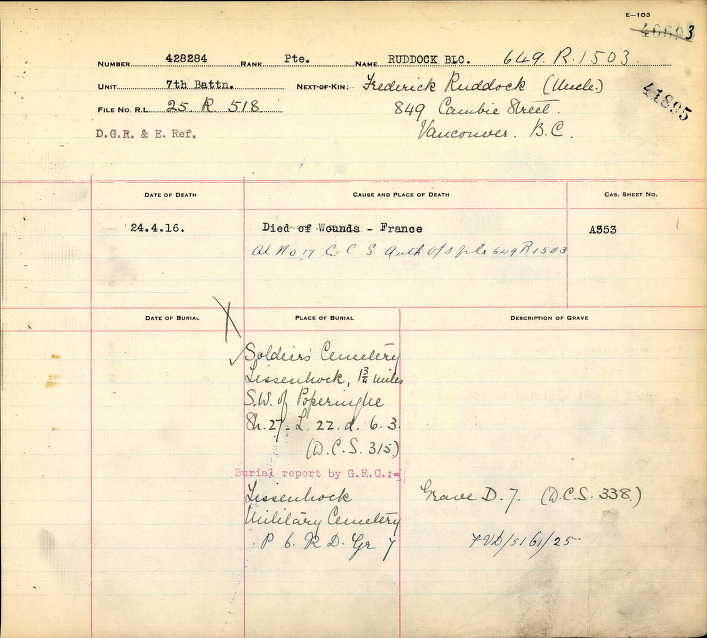 E—103
3
NUMBER 428284 RANK Pte. NAME RUDDOCK BLC. 649. R. 1503.
UNIT 7th Battn. NEXT-OF-KIN: Frederick Ruddock (Uncle.)
41895
FILE NO. R.L. 25. R. 518 849 Cambie Street.
D.G.R. & E. Ref. Vancouver. B.C.
DATE OF DEATH CAUSE AND PLACE OF DEATH CAS. SHEET NO.
24.4.16. Died of Wounds - France A553
At No 17 C C S Auth file 649R1503
DATE OF BURIAL PLACE OF BURIAL DESCRIPTION OF GRAVE
Soldeirs Cemetery
Lissenhock, 1¾ miles
S.W. of Poperinghe
Sh. 27 - L. 22. d. 6. 3.
(D.C.S. 315)
Burial report by G.R.C.:-
Lissenhock Grave D. 7. (D.C.S. 338.)
Military Cemetery
P 6. R D. Gr 7